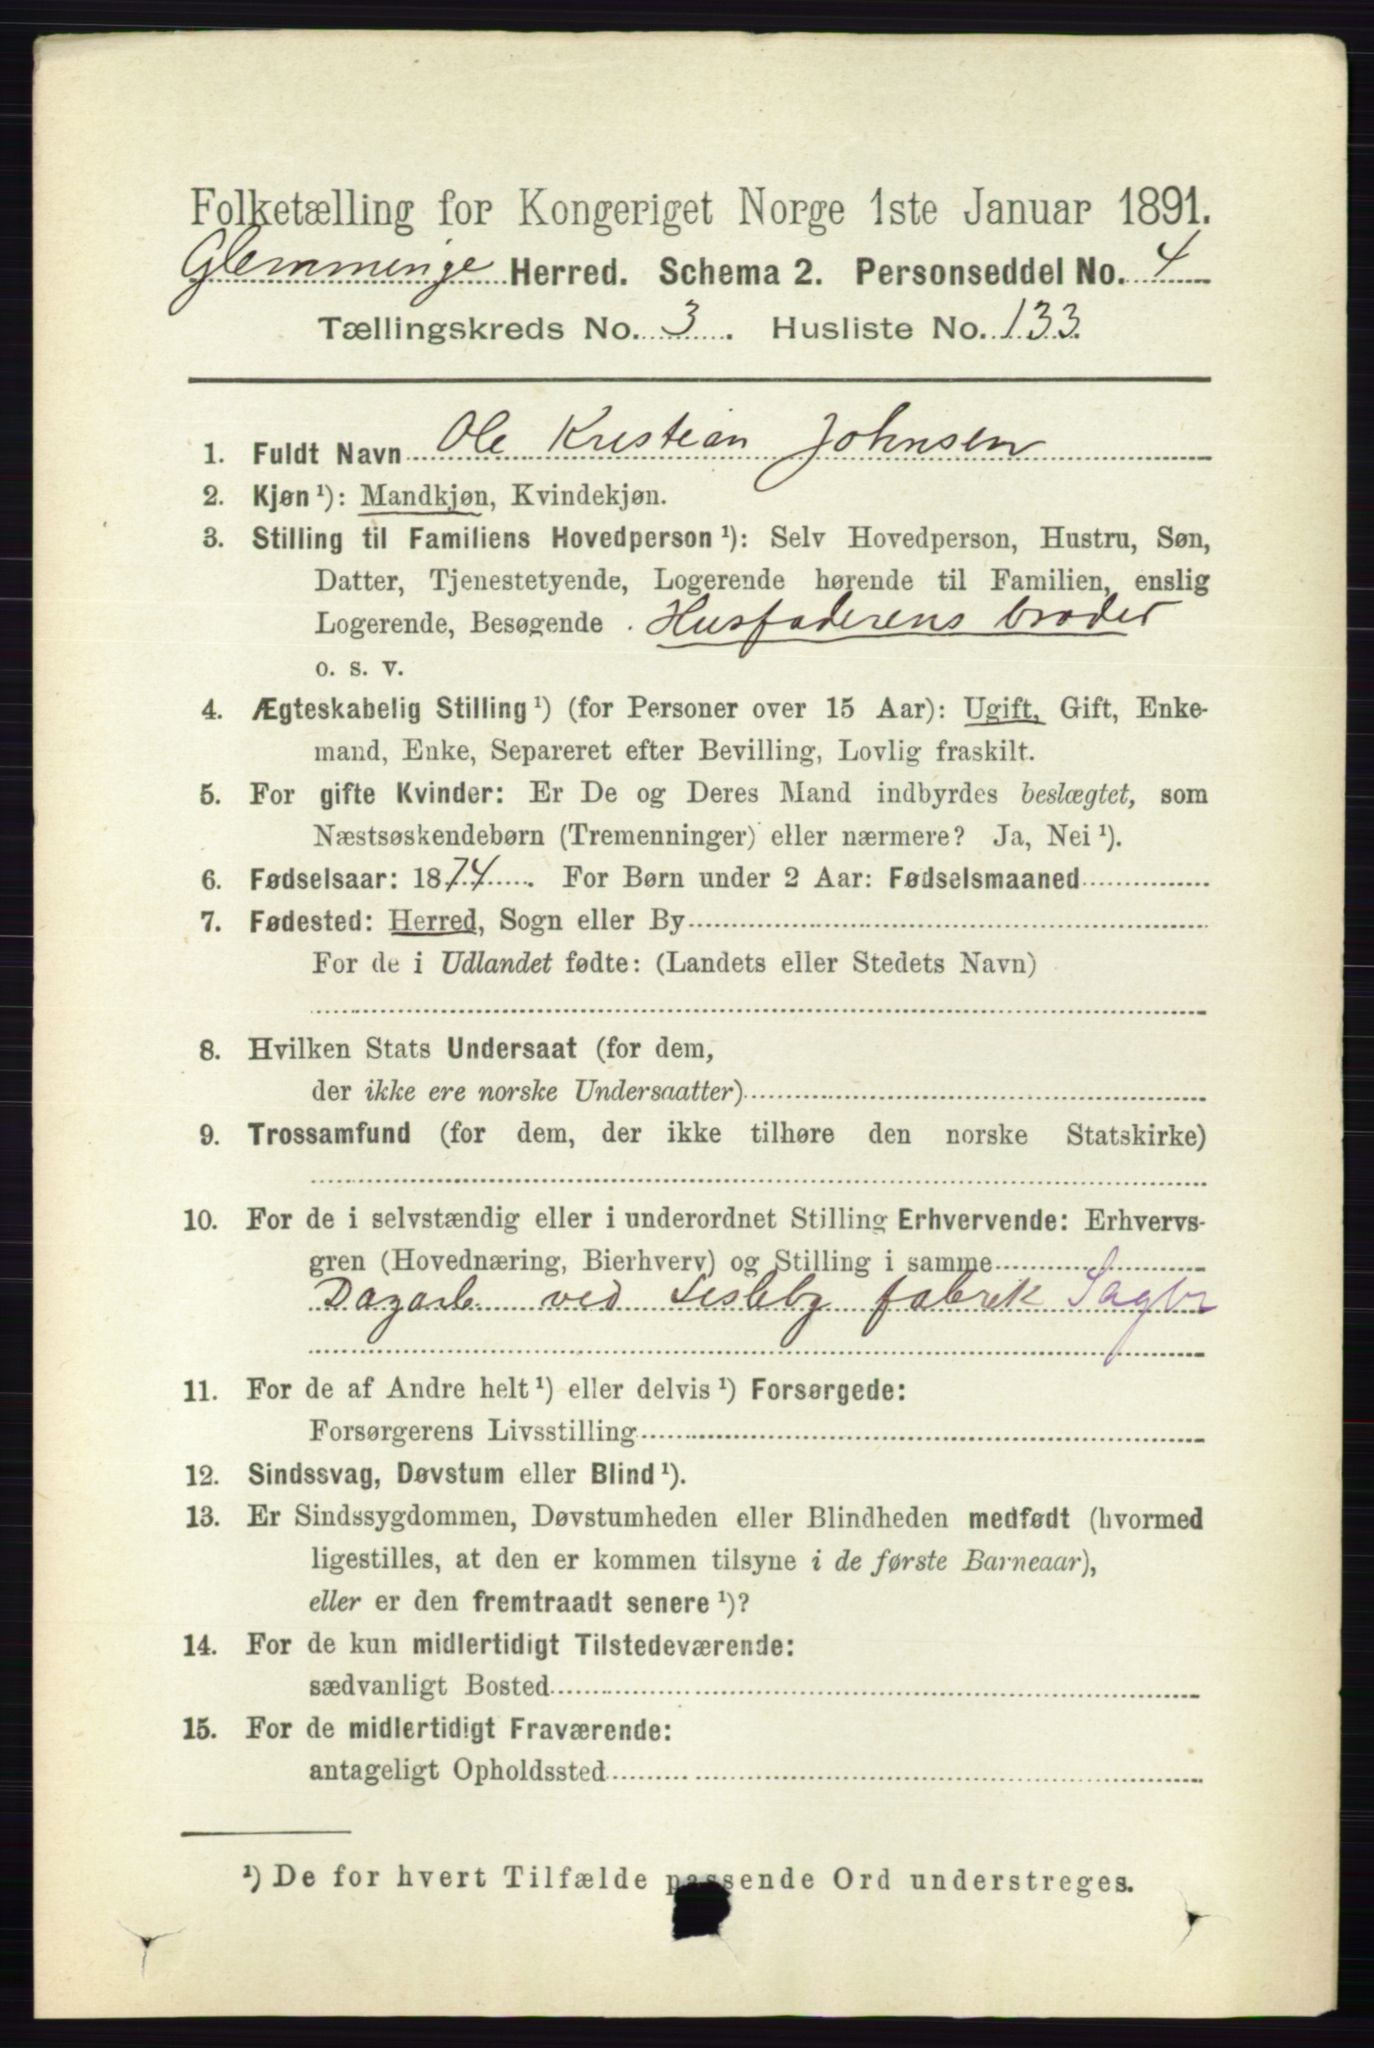 Folketælling for Kongeriget Norge 1ste Januar 1891.
Glemminge Herred. Schema 2. Personseddel No. 4
Tællingskreds No. 3. Husliste No. 133
1. Fuldt Navn Ole Kristian Johnsen
2. Kjøn ¹): Mandkjøn, Kvindekjøn.
3. Stilling til Familiens Hovedperson ¹): Selv Hovedperson, Hustru, Søn,
Datter, Tjenestetyende, Logerende hørende til Familien, enslig
Logerende, Besøgende . Husfaderens broder
o. s. v.
4. Ægteskabelig Stilling ¹) (for Personer over 15 Aar): Ugift, Gift, Enke-
mand, Enke, Separeret efter Bevilling, Lovlig fraskilt.
5. For gifte Kvinder: Er De og Deres Mand indbyrdes beslægtet, som
Næstsøskendebørn (Tremenninger) eller nærmere? Ja, Nei ¹).
6. Fødselsaar: 1874. For Børn under 2 Aar: Fødselsmaaned
7. Fødested: Herred, Sogn eller By
For de i Udlandet fødte: (Landets eller Stedets Navn)
8. Hvilken Stats Undersaat (for dem,
der ikke ere norske Undersaatter)
9. Trossamfund (for dem, der ikke tilhøre den norske Statskirke)
10. For de i selvstændig eller i underordnet Stilling Erhvervende: Erhvervs-
gren (Hovednæring, Bierhverv) og Stilling i samme
Dagarb ved Lisleby fabrik Sagbr
11. For de af Andre helt ¹) eller delvis ¹) Forsørgede:
Forsørgerens Livsstilling
12. Sindssvag, Døvstum eller Blind ¹).
13. Er Sindssygdommen, Døvstumheden eller Blindheden medfødt (hvormed
ligestilles, at den er kommen tilsyne i de første Barneaar),
eller er den fremtraadt senere ¹)?
14. For de kun midlertidigt Tilstedeværende:
sædvanligt Bosted
15. For de midlertidigt Fraværende:
antageligt Opholdssted
¹) De for hvert Tilfælde passende Ord understreges.